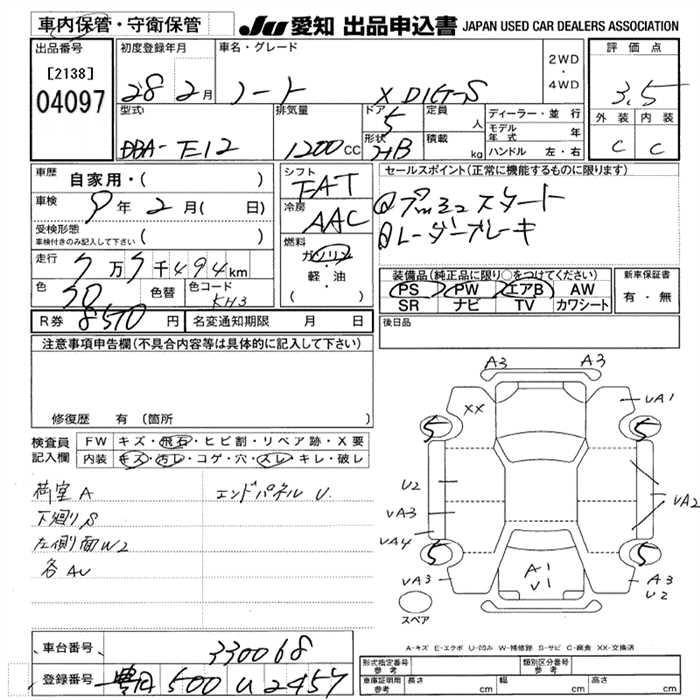 車内保管・守衛保管
JU 愛知 出品申込書 JAPAN USED CAR DEALERS ASSOCIATION
出品番号
[2138]
04097
初度登録年月
28 2月
車名・グレード
ノート X DIG-S
2WD
・
4WD
評価点
3.5
外装 内装
C C
型式
DBA-E12
排気量
1200cc
ドア
5
形状
HB
定員
人
積載
kg
ディーラー・並行
モデル年式 年
ハンドル 左・右
車歴 自家用・( )
車検 9年2月( 日)
受検形態
車検付きのみ記入して下さい ( )
走行 7万7千494km
色
30
色替
色コード
KH3
R券 8510円
名変通知期限 月 日
シフト
FAT
冷房
AAC
燃料
ガソリン
・
軽・油
( )
セールスポイント(正常に機能するものに限ります)
スタート
レーダーブレーキ
装備品(純正品に限り○をつけてください)
PS PW エアB AW
SR ナビ TV カワシート
新車保証書
有・無
後日品
注意事項申告欄(不具合内容等は具体的に記入して下さい)
修復歴 有 (箇所
検査員記入欄
FW キズ・飛石・ヒビ割・リペア跡・X要
内装 キズ・汚レ・コゲ・穴・スレ・キレ・破レ
荷室A
エンドパネルU.
下廻りS
左側面W2
各AU
A3 A3
XX
UA1
5 5
U2
UA3
UA2
UA4
5 5
UA3
A1
V1
A3
U2
スペア
A-キズ E-エクボ U-凹み W-補修跡 S-サビ C-腐食 XX-交換済
車台番号 330068
登録番号 豊田 500 U 2457
形式指定番号
参考
類別区分番号
参考
車庫証明用
参考
長さ cm
幅 cm
高さ cm